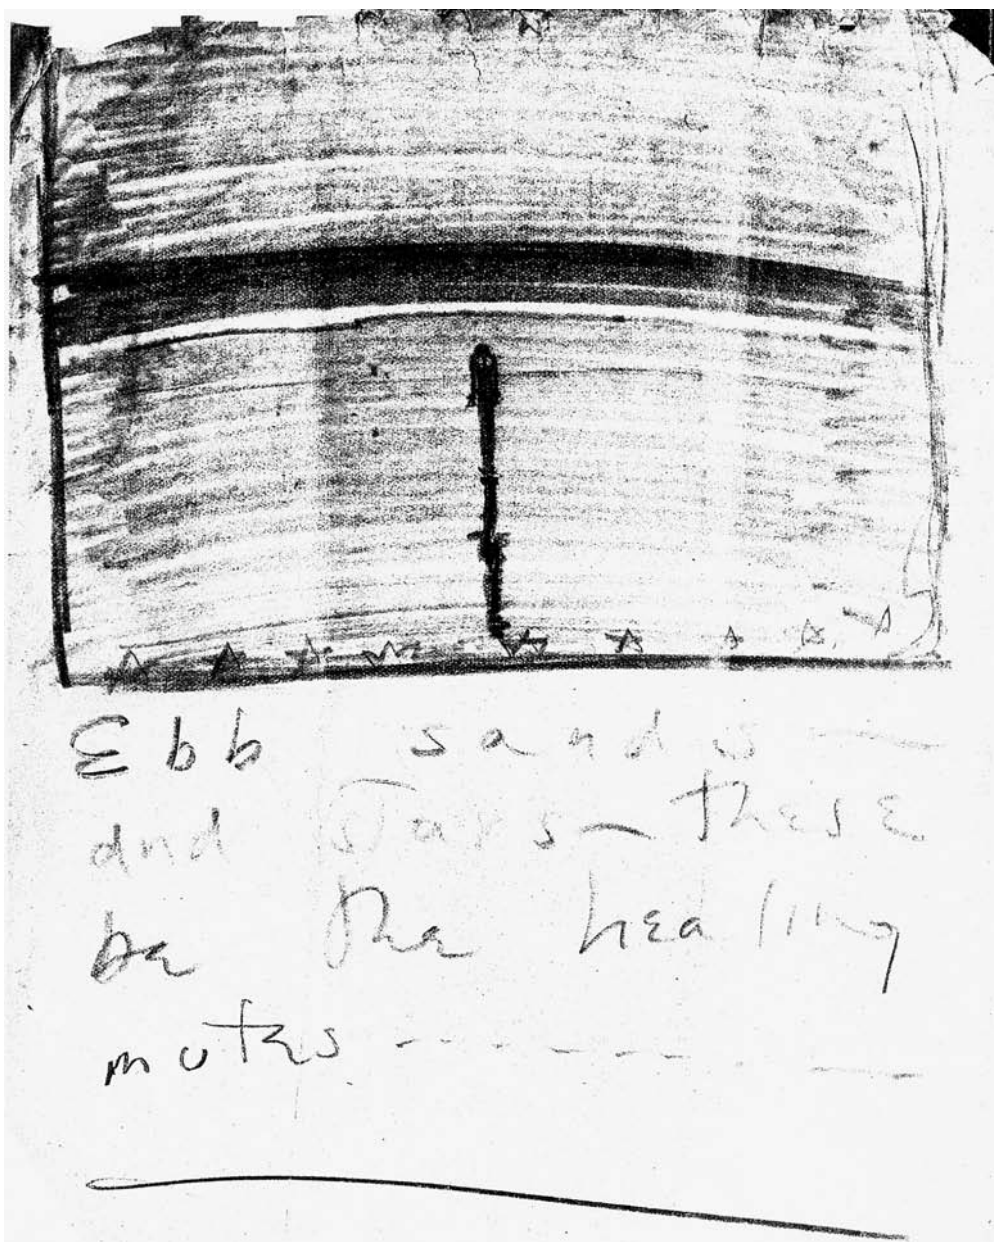 Ebb sands —
and stars — these
be the healing
mutes - - - - - - - —